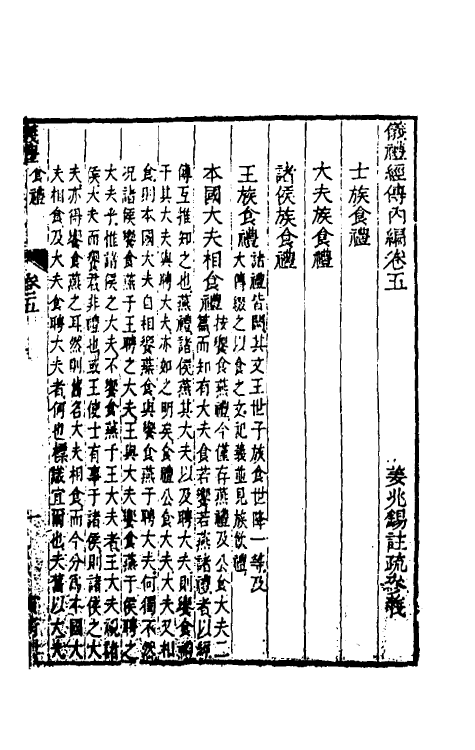 儀禮經傳內編卷五
姜兆錫註疏參義
士族食禮
大夫族食禮
諸侯族食禮
王族食禮諸禮皆闕其文王世子族食世降一等及
大傳綴之以食之文記義並見族飲禮
本國大夫相食禮按饗食燕禮今僅存燕禮及公食大夫二
篇而知有大夫食若饗若燕諸禮者以經
傳互推知之也燕禮諸侯燕其大夫以及聘大夫則饗食
于其大夫與聘大夫亦如之明矣食禮公食大夫大夫又相
食則本國大夫自相饗燕食與饗食燕于聘大夫何獨不然
况諸侯饗食燕于王聘之大夫王與大夫饗食燕于侯聘之
大夫乎惟諸侯之大夫不饗食燕于王大夫者王大夫視諸
侯大夫而饗君非禮也或王使士有事于諸侯則諸侯之大
夫亦得饗食燕之耳然則舊名大夫相食而今分爲本國大
夫相食及大夫食聘大夫者何也標識宜爾也夫舊以大夫
食禮
卷五
一